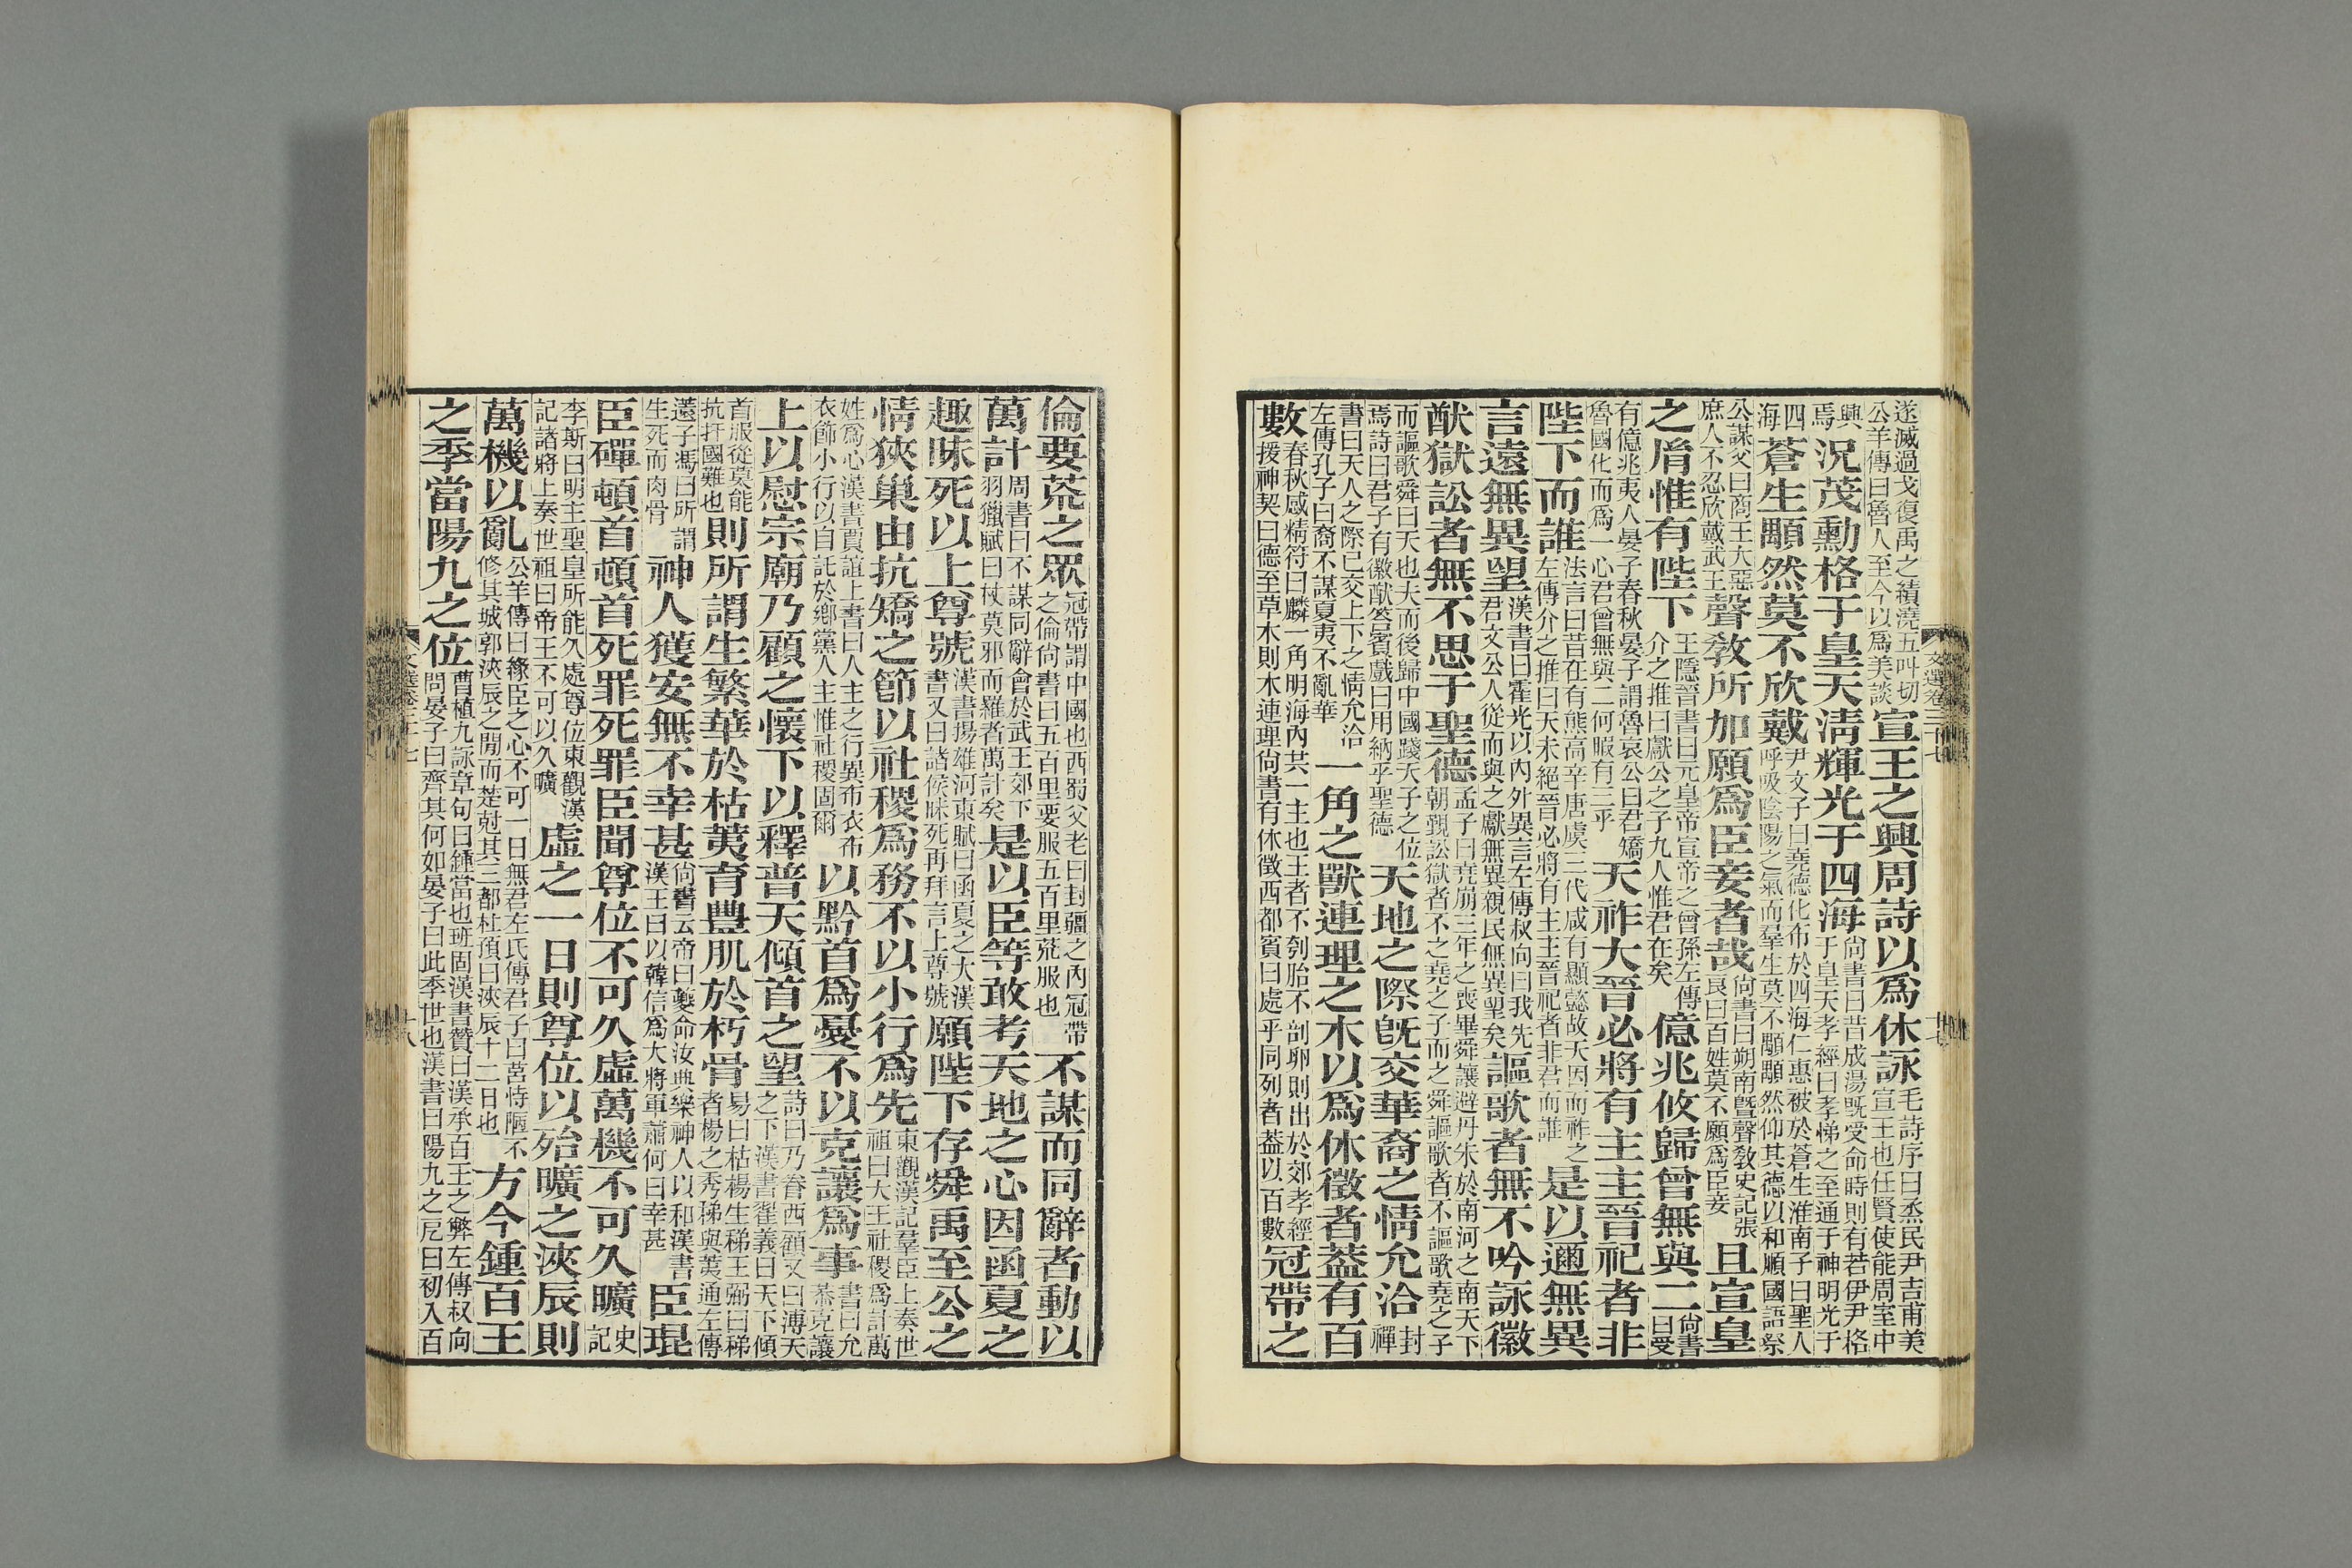 遂滅過戈復禹之績澆五叫切公羊傳曰魯人至今以爲美談宣王之興周詩以爲休詠毛詩序曰烝民尹吉甫美宣王也任賢使能周室中
興焉況茂勳格于皇天淸輝光于四海尚書曰昔成湯旣受命時則有若伊尹格于皇天孝經曰孝悌之至通于神明光于
四海蒼生顒然莫不欣戴尹文子曰堯德化布於四海仁惠被於蒼生淮南子曰聖人呼吸陰陽之氣而羣生莫不顒顒然仰其德以和順國語祭
公謀父曰商王大惡庶人不忍欣戴武王聲敎所加願爲臣妾者哉尚書曰朔南曁聲敎史記張良曰百姓莫不願爲臣妾且宣皇
之胤惟有陛下王隱晉書曰元皇帝宣帝之曾孫左傳介之推曰獻公之子九人惟君在矣億兆攸歸曾無與二尚書曰受
有億兆夷人晏子春秋晏子謂魯哀公曰君矯魯國化而爲一心君曾無與二何暇有三乎天祚大晉必將有主主晉祀者非
陛下而誰法言曰昔在有熊高辛唐虞三代咸有顯懿故天因而祚之左傳介之推曰天未絕晉必將有主主晉祀者非君而誰是以邇無異
言遠無異望漢書曰霍光以內外異言左傳叔向曰我先君文公人從而與之獻無異親民無異望矣謳歌者無不吟詠徽
猷獄訟者無不思于聖德孟子曰堯崩三年之喪畢舜讓避丹朱於南河之南天下朝覲訟獄者不之堯之子而之舜謳歌者不謳歌堯之子
而謳歌舜曰天也夫而後歸中國踐天子之位焉詩曰君子有徽猷答賓戲曰用納乎聖德天地之際旣交華裔之情允洽封禪
書曰天人之際已交上下之情允洽左傳孔子曰裔不謀夏夷不亂華一角之獸連理之木以爲休徵者葢有百
數春秋感精符曰麟一角明海內共一主也王者不刳胎不剖卵則出於郊孝經援神契曰德至草木則木連理尚書有休徵西都賓曰處乎同列者葢以百數冠帶之
文選卷三十七
十七
倫要荒之眾冠帶謂中國也西蜀父老曰封疆之內冠帶之倫尚書曰五百里要服五百里荒服也不謀而同辭者動以
萬計周書曰不謀同辭會於武王郊下羽獵賦曰杖莫邪而羅者萬計矣是以臣等敢考天地之心因函夏之
趣昧死以上尊號漢書揚雄河東賦曰函夏之大漢書又曰諸侯昧死再拜言上尊號願陛下存舜禹至公之
情狹巢由抗矯之節以社稷爲務不以小行爲先東觀漢記羣臣上奏世祖曰大王社稷爲計萬
姓爲心漢書賈誼上書曰人主之行異布衣布衣節小行以自託於鄉黨人主惟社稷固爾以黔首爲憂不以克讓爲事書曰允恭克讓
上以慰宗廟乃顧之懷下以釋普天傾首之望詩曰乃眷西顧又曰溥天之下漢書翟義曰天下傾
首服從莫能抗扞國難也則所謂生繁華於枯荑育豐肌於朽骨易曰枯楊生稊王弼曰稊者楊之秀稊與荑通左傳
薳子馮曰所謂生死而肉骨神人獲安無不幸甚尚書云帝曰夔命汝典樂神人以和漢書漢王曰以韓信爲大將軍蕭何曰幸甚臣琨
臣磾頓首頓首死罪死罪臣聞尊位不可久虛萬機不可久曠史記
李斯曰明主聖皇所能久處尊位東觀漢記諸將上奏世祖曰帝王不可以久曠虛之一日則尊位以殆曠之浹辰則
萬機以亂公羊傳曰緣臣之心不可一日無君左氏傳君子曰莒恃陋不修其城郭浹辰之閒而楚尅其三都杜預曰浹辰十二日也方今鍾百王
之季當陽九之位曹植九詠章句曰鍾當也班固漢書贊曰漢承百王之弊左傳叔向問晏子曰齊其何如晏子曰此季世也漢書曰陽九之戹曰初入百
文選卷三十七
十八